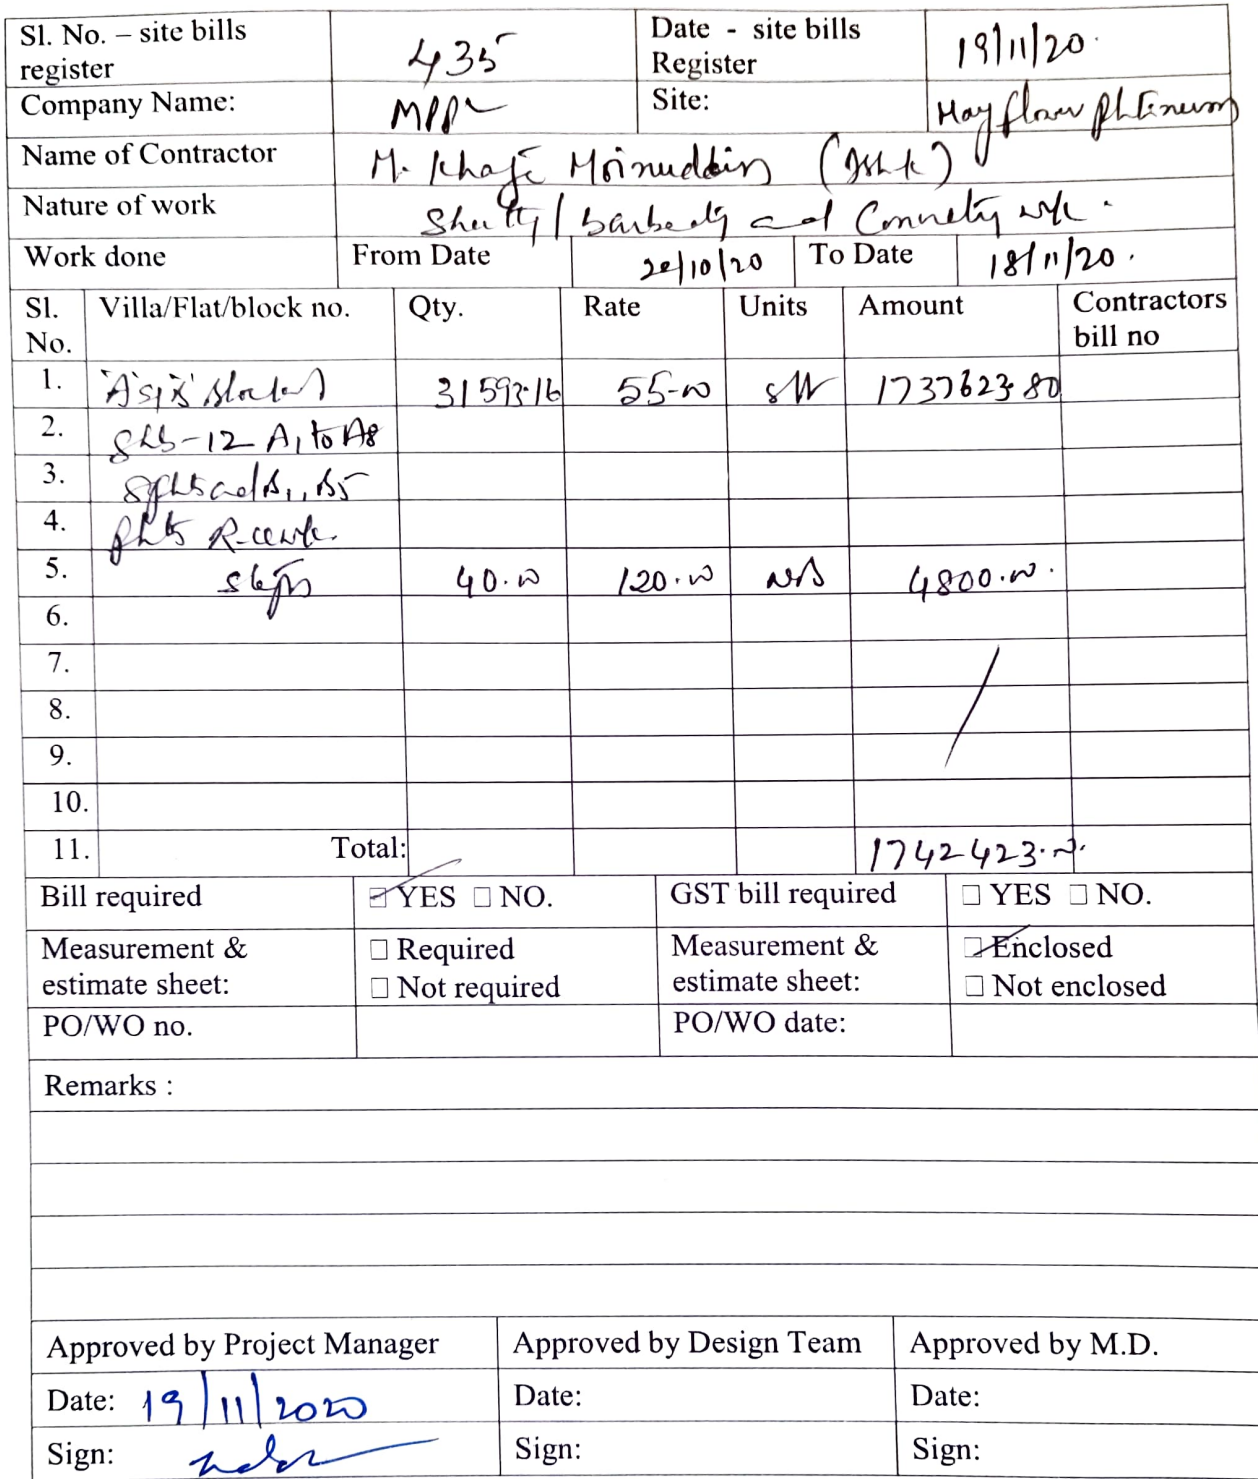 Sl. No. – site bills register 435 Date - site bills Register 19/11/20.
Company Name: MPPL Site: Mayflower Platinum
Name of Contractor M. Khaja Moinuddin
Nature of work and work.
Work done From Date 20/10/20 To Date 18/11/20.
Sl. No. Villa/Flat/block no. Qty. Rate Units Amount Contractors bill no
1. 31593.16 55-00 sft 1737623.80
2. slab-12 A1 to A8
3. B1, B5
4. flats
5. steps 40.00 120.00 nos 4800.00.
6.
7.
8.
9.
10.
11. Total: 1742423.00.
Bill required ☑ YES ☐ NO. GST bill required ☐ YES ☐ NO.
Measurement & estimate sheet: ☐ Required ☐ Not required Measurement & estimate sheet: ☑ Enclosed ☐ Not enclosed
PO/WO no. PO/WO date:
Remarks :
Approved by Project Manager Approved by Design Team Approved by M.D.
Date: 19/11/2020 Date: Date:
Sign: Sign: Sign: